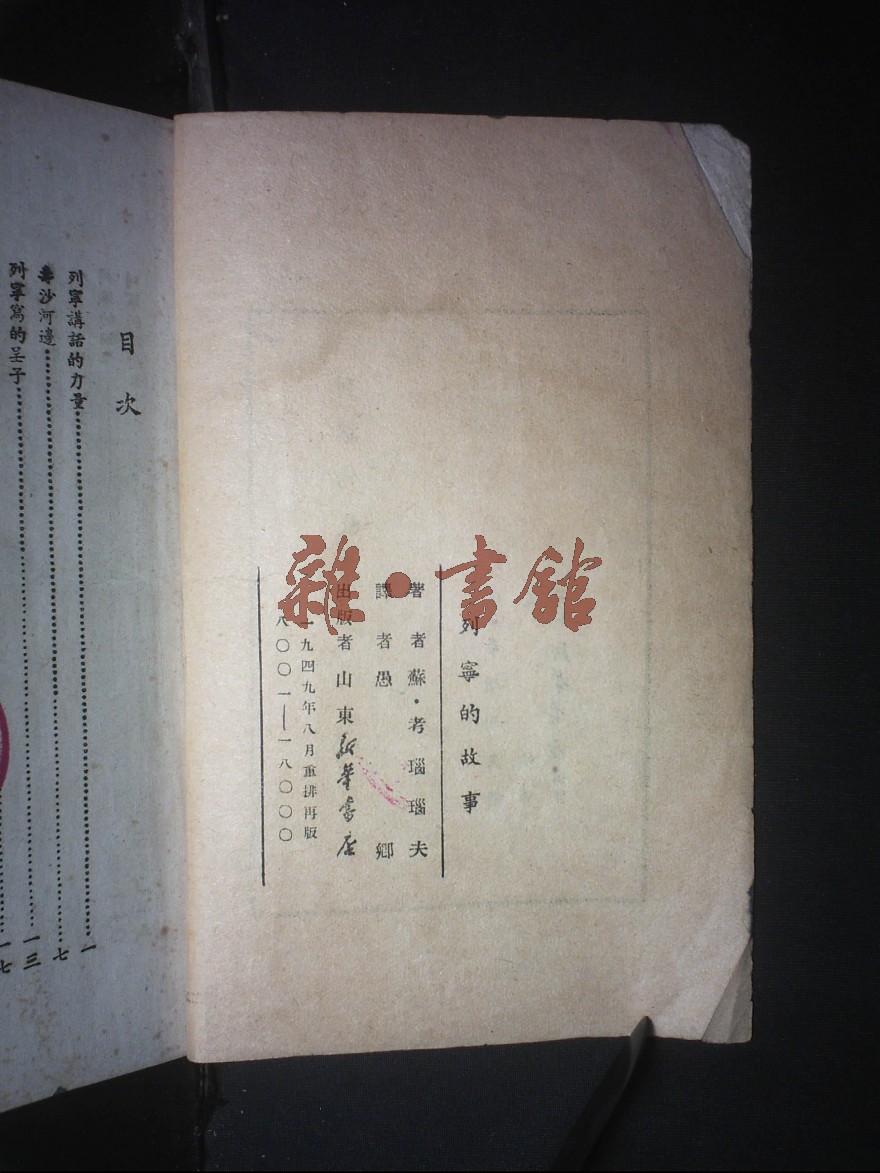 列寧的故事
著者蘇·考瑙瑙夫
譯者愚卿
出版者山東新華書店
一九四九年八月重排再版
八〇〇一——一八〇〇〇
雜·書館
目次
列寧講話的力量……一
沙河邊……七
列寧寫的呈子……一三
一七